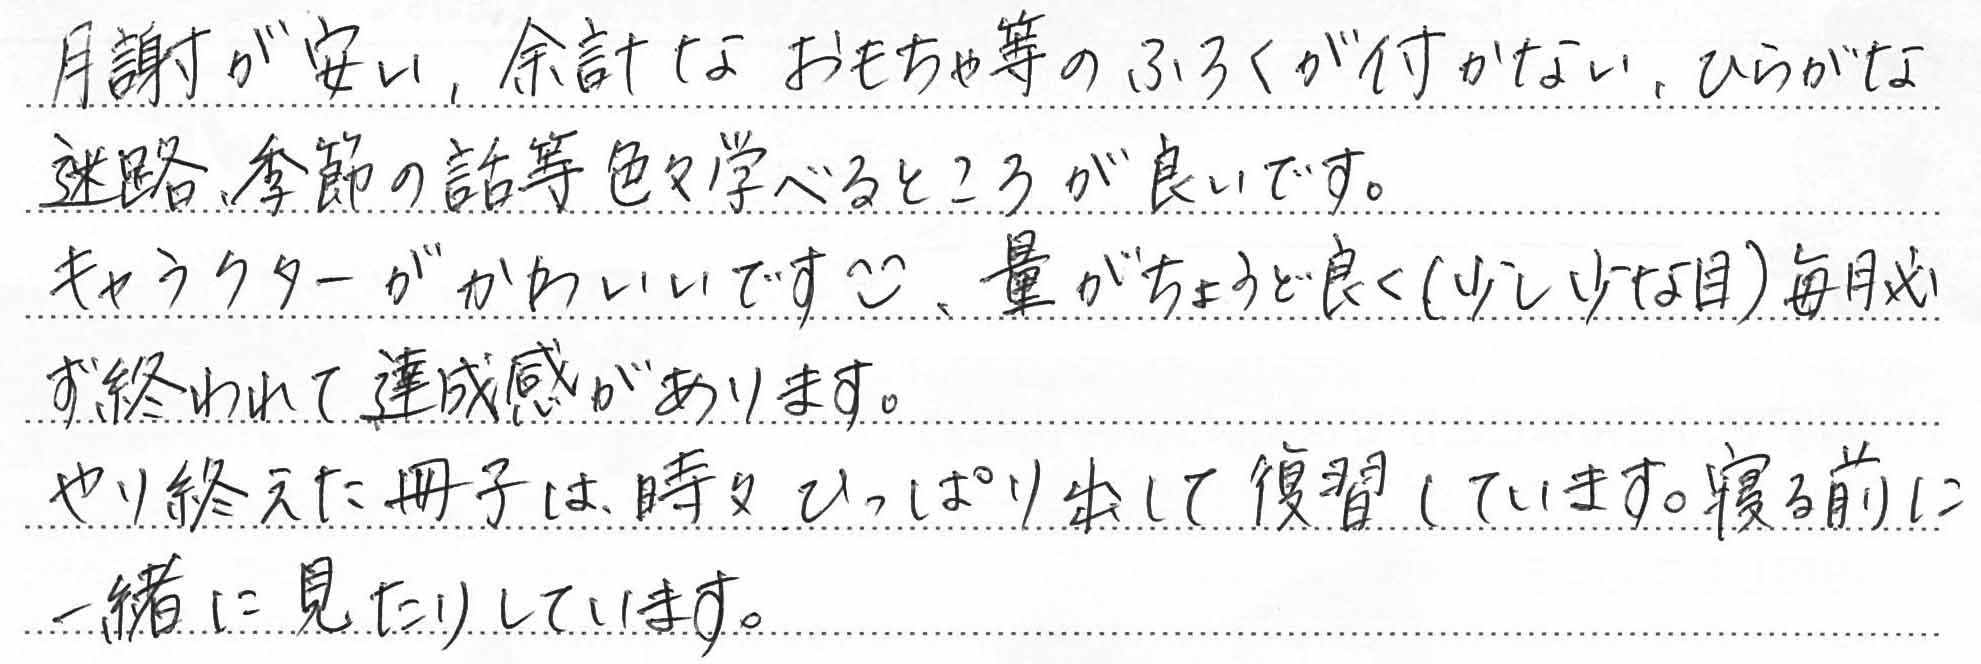 月謝が安い、余計なおもちゃ等のふろくが付かない、ひらがな
迷路、季節の話等色々学べるところが良いです。
キャラクターがかわいいです、量がちょうど良く(少し少な目)毎月必
ず終われて達成感があります。
やり終えた冊子は、時々ひっぱり出して復習しています。寝る前に
一緒に見たりしています。